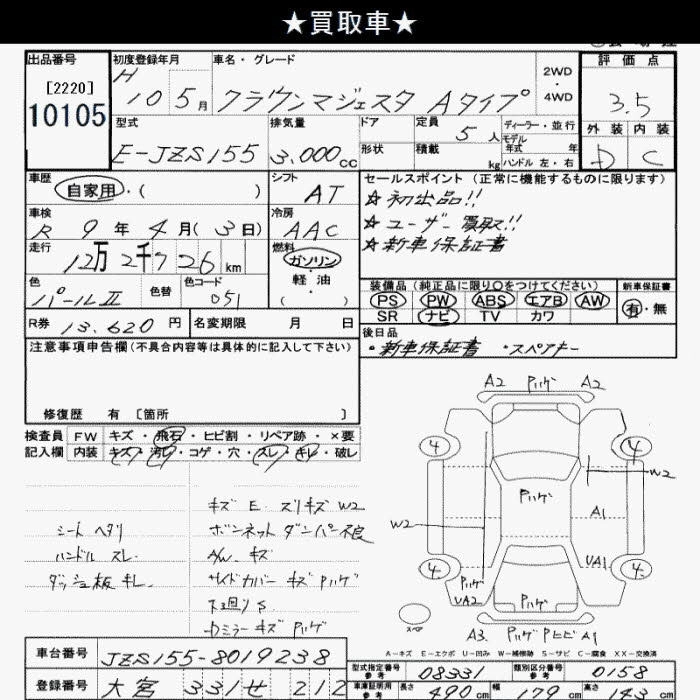 ★買取車★
出品番号
[2220]
10105
初度登録年月
H 10 5月
車名・グレード
クラウンマジェスタ Aタイプ
2WD
・
4WD
評価点
3.5
外装 内装
D C
型式
E-JZS155
排気量
3.000cc
ドア
形状
定員
5人
積載
kg
ディーラー・並行
モデル
年式 年
ハンドル 左・右
車歴
自家用・( )
シフト
AT
車検
R 9年 4月( 3日)
冷房
AAC
走行
12万2千726km
燃料
ガソリン
・
軽油
( )
色
パールⅡ
色替
色コード
051
R券 13.620円
名変期限 月 日
セールスポイント(正常に機能するものに限ります)
☆初出品!!
☆ユーザー買取!!
☆新車保証書
装備品(純正品に限り○をつけてください)
PS PW ABS エアB AW
SR ナビ TV カワ
新車保証書
有・無
後日品
・新車保証書 ・スペアキー
注意事項申告欄(不具合内容等は具体的に記入して下さい)
修復歴 有 [箇所 ]
検査員
記入欄
FW キズ・飛石・ヒビ割・リペア跡・×要
内装 キズ・汚れ・コゲ・穴・スレ・キレ・破レ
シートヘタリ
ハンドルスレ
ダッシュ板キレ
キズE スリキズW2
ボンネットダンパー不良
A/W キズ
サイドカバーキズPハゲ
下廻りS
Dミラーキズ Pハゲ
A2 Pハゲ A2
4 4
Pハゲ
W2
W2
A1
UA1
4 4
Pハゲ
UA2
Pハゲ
スペア
A3 Pハゲ PヒビA1
A-キズ E-エクボ U-凹み W-補修跡 S-サビ C-腐食 XX-交換済
車台番号
JZS155-8019238
登録番号
大宮 331せ 212
型式指定番号
参考
08331
類別区分番号
参考
0158
車庫証明用
参考
長さ
490cm
幅
179cm
高さ
cm